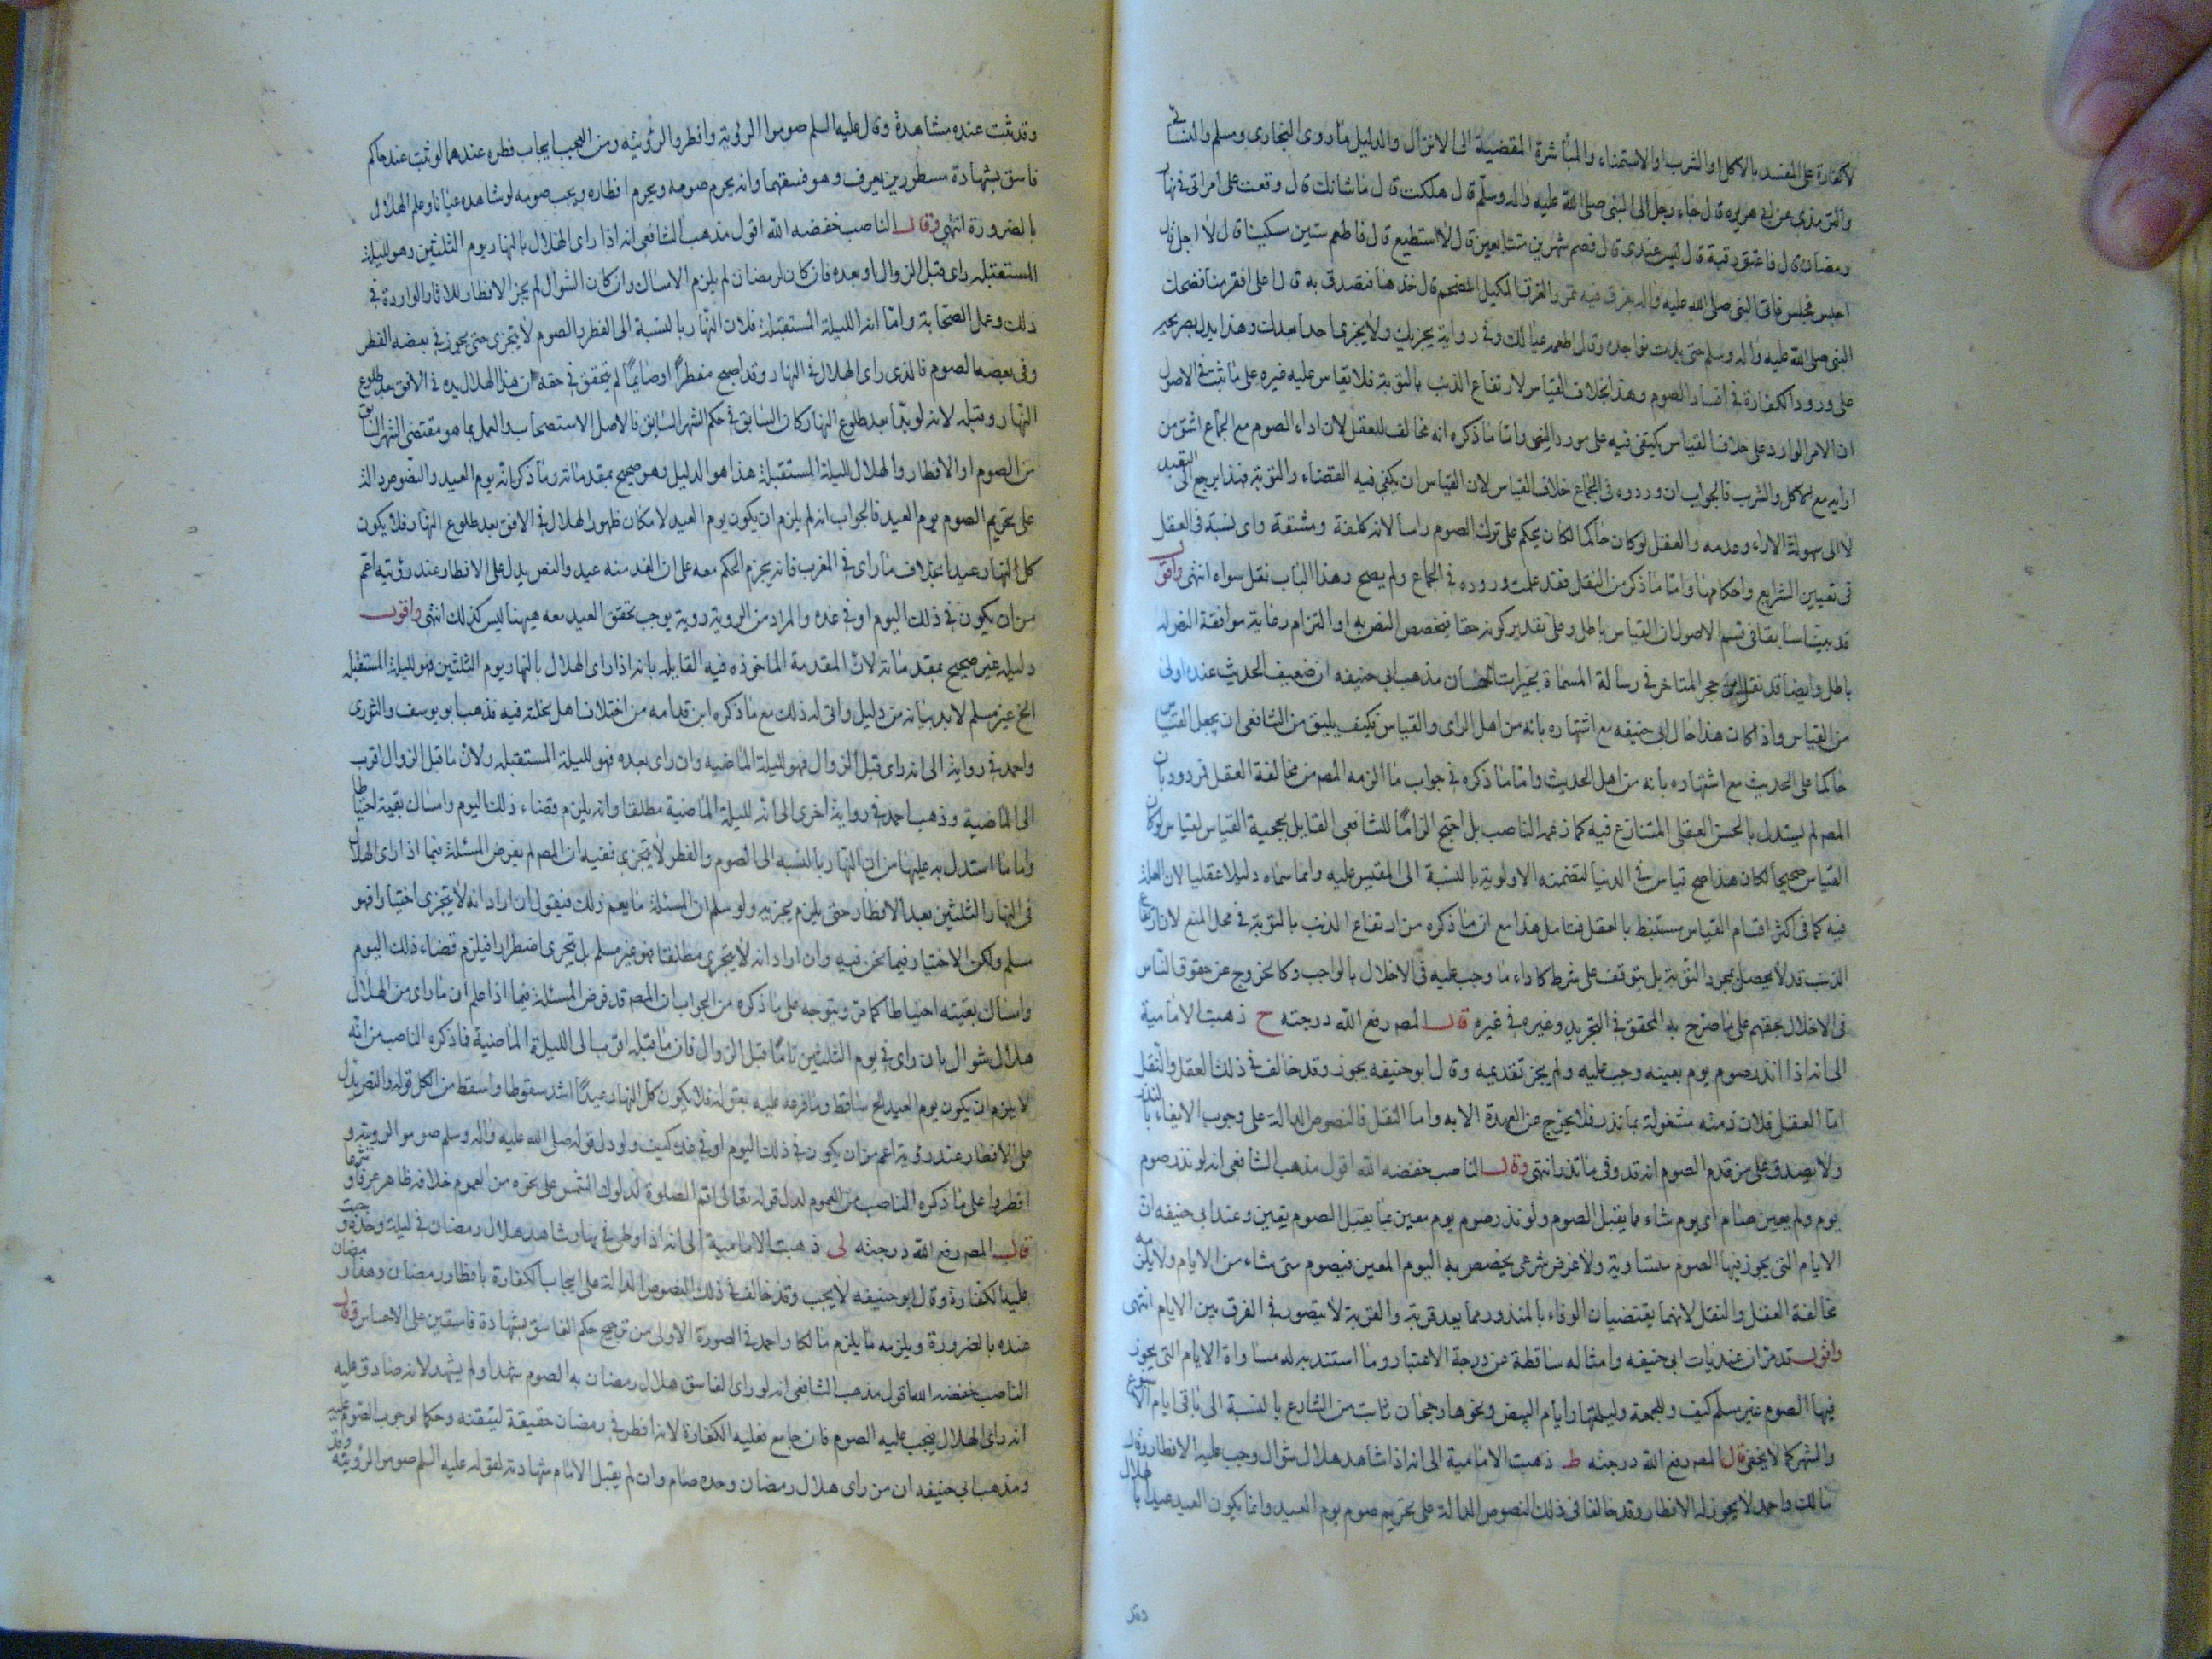 لا كفارة على المفسد بالاكل والشرب والاستمناء والمباشرة المقضية الى الانزال والدليل ما روى البخارى ومسلم والنسائى
والترمذى عن ابى هريره قال جاء رجل الى النبى صلى الله عليه واله وسلم قال هلكت قال ما شانك قال وقعت على امراتى فى نهار
رمضان قال فاعتق رقبة قال ليس عندى قال فصم شهرين متتابعين قال لا استطيع قال فاطعم ستين مسكينا قال لا اجد قال
اجلس فجلس فاتى النبى صلى الله عليه واله بعرق فيه تمر والعرق المكيل الضخم قال خذ هذا فتصدق به قال اعلى افقر منا فضحك
النبى صلى الله عليه واله وسلم حتى بدت نواجده وقال اطعمه عيالك وفى رواية يجزيك ولا يجزى احدا بعدك وهذا يدل بصريحه
على ورود الكفارة فى افساد الصوم وهذا بخلاف القياس لارتفاع الذنب بالتوبة فلا يقاس عليه غيره على ما ثبت فى الاصول
ان الامر الوارد على خلاف القياس يكتفى فيه على مورد النص واما ما ذكره انه مخالف للعقل لان اداء الصوم مع الجماع اشق من
ادايه مع الاكل والشرب فالجواب ان وروده فى الجماع خلاف القياس لان القياس ان يكفى فيه القضاء والتوبة فهذا يرجع الى التعبد
لا الى سهولة الاداء وعدمه والعقل لو كان حاكما لكان يحكم على ترك الصوم راسا لانه كلفة ومشقة واى نسبة فى العقل
فى تعيين الشرايع واحكامها واما ما ذكر من النقل فقد علمت وروده فى الجماع ولم يصح وهذا الباب نقل سواه انتهى واقول
قد بينا سابقا فى قسم الاصول ان القياس باطل وعلى تقدير كونه حقا يخصص النص به او التزام رعاية موافقة النص له
باطل وايضا قد نقل ابن حجر المتاخر فى رسالة المسماة بخيرات الحسان مذهب ابى حنيفه ان ضعيف الحديث عنده اولى
من القياس واذا كان هذا حال ابى حنيفه مع اشتهاره بانه من اهل الراى والقياس فكيف يليق من الشافعى ان يجعل القياس
حاكما على الحديث مع اشتهاره بانه من اهل الحديث واما ما ذكره فى جواب ما الزمه المصه من مخالفة العقل فمردود بان
المصه لم يستدل بالحسن العقلى المتنازع فيه كما زعمه الناصب بل احتج الزاما للشافعى القايل بحجية القياس بقياس لو كان
القياس صحيحا لكان هذا اصح قياس فى الدنيا لتضمنه الاولوية بالنسبة الى المقيس عليه وانما سماه دليلا عقليا لان العلة
فيه كما فى اكثر اقسام القياس مستنبط بالعقل فتامل هذا مع ان ما ذكره من ارتفاع الذنب بالتوبة فى محل المنع لان ارتفاع
الذنب قد لا يحصل بمجرد التوبة بل يتوقف على شرط كاداء ما وجب عليه فى الاخلال بالواجب وكالخروج عن حقوق الناس
فى الاخلال بحقهم على ما صرح به المحقق فى التجريد وغيره فى غيره قال المصه رفع الله درجته ح ذهبت الامامية
الى انه اذا نذر صوم يوم بعينه وجب عليه ولم يجز تقديمه وقال ابو حنيفه يجوز وقد خالف فى ذلك العقل والنقل
اما العقل فلان ذمته مشغولة بما نذر فلا يخرج عن العهدة الا به واما النقل فالنصوص الدالة على وجوب الايفاء بالنذر
ولا يصدق على من قدم الصوم انه قد وفى ما نذر انتهى وقال الناصب خفضه الله اقول مذهب الشافعى انه لو نذر صوم
يوم ولم يعين صام اى يوم شاء مما يقبل الصوم ولو نذر صوم يوم معين مما يقبل الصوم يتعين وعند ابى حنيفه ان
الايام التى يجوز فيها الصوم متساوية ولا غرض شرعى يخصص به اليوم المعين فيصوم متى شاء من الايام ولا يلزمه
مخالفة العقل والنقل لانهما يقتضيان الوفاء بالمنذور مما يعد قربة والقربة لا يتصور فى الفرق بين الايام انتهى
واقول قد مر ان عنديات ابى حنيفه وامثاله ساقطة عن درجة الاعتبار وما استند به له مساواة الايام التى يجوز
فيها الصوم غير مسلم كيف وللجمعة وليلتها وايام البيض ونحوها رجحان ثابت من الشارع بالنسبة الى باقى ايام الاسبوع
والشهر كما لا يخفى قال المصه رفع الله درجته ط ذهبت الامامية الى انه اذا شاهد هلال شوال وجب عليه الافطار وقال
مالك واحمد لا يجوز له الافطار وقد خالفا فى ذلك النصوص الدالة على تحريم صوم يوم العيد وانما يكون العيد عيدا بالهلال
وقد
وقد ثبت عنده مشاهدة وقال عليه السلم صوموا الرؤية وافطروا لرؤيته ومن العجب ايجاب فطره عندهما لو ثبت عند حاكم
فاسق بشهادة مسطورين يعرف وهو فسقهما وانه يحرم صومه ويحرم افطاره ويجب صومه لو شاهده عيانا وعلم الهلال
بالضرورة انتهى وقال الناصب خفضه الله اقول مذهب الشافعى انه اذا راى الهلال بالنهار يوم الثلثين وهو لليلة
المستقبله راى قبل الزوال او بعده فان كان لرمضان لم يلزم الامساك وان كان الشوال لم يجز الافطار للاثار الواردة فى
ذلك وعمل الصحابة واما انه لليلة المستقبلة فلان النهار بالنسبة الى الفطر والصوم لا يتجزى حتى يجوز فى بعضه الفطر
وفى بعضه الصوم فالذى راى الهلال فى النهار وقد اصبح مفطرا او صايما لم يتحقق فى حقه ان هذا الهلال بدء فى الافق بعد طلوع
النهار وقبله لانه لو بدا بعد طلوع النهار كان السابق فى حكم الشهر السابق فالاصل الاستصحاب والعمل بما هو مقتضى الشهر السابق
من الصوم او الافطار والهلال لليلة المستقبلة هذا هو الدليل وهو صحيح بمقدماته وما ذكر انه يوم العيد والنصوص دالة
على تحريم الصوم يوم العيد فالجواب انه لم يلزم ان يكون يوم العيد لامكان ظهور الهلال فى الافق بعد طلوع النهار فلا يكون
كل النهار عيدا بخلاف ما راى فى المغرب فانه يجزم الحكم معه على ان الغد منه عيد والنص يدل على الافطار عند رؤيته اعم
من ان يكون فى ذلك اليوم او فى غده والمراد من الروية روية يوجب تحقق العيد معه هيهنا ليس كذلك انتهى واقول
دليله غير صحيح بمقدماته لان المقدمة الماخوذه فيه القايله بانه اذا راى الهلال بالنهار يوم الثلثين فهو لليلة المستقبله
الخ غير مسلم لا بد بيانه من دليل وانى له ذلك مع ما ذكره ابن قدامه من اختلاف اهل نحلته فيه فذهب ابو يوسف والثورى
واحمد فى رواية الى انه راى قبل الزوال فهو لليلة الماضيه وان راى بعده فهو لليلة المستقبله ولان ما قبل الزوال اقرب
الى الماضية وذهب احمد فى رواية اخرى الى انه لليلة الماضية مطلقا وانه يلزم قضاء ذلك اليوم وامساك بقية احتياطا
واما ما استدل به عليها من ان النهار بالنسبه الى الصوم والفطر لا يتجزى ففيه ان المصه لم يفرض المسئلة فيما اذا راى الهلال
فى النهار الثلثين بعد الافطار حتى يلزم تجزيه ولو سلم ان المسئلة ما يعم ذلك فنقول ان اراد انه لا يتجزى اختيارا فهو
مسلم ولكن الاختيار فيما نحن فيه وان اراد انه لا يتجزى مطلقا فهو غير مسلم بل يتجزى اضطرارا فيلزم قضاء ذلك اليوم
وامساك بقيته احتياطا كما مر ويتوجه على ما ذكره من الجواب ان المصه قد فرض المسئلة فيما اذا علم ان ما راى من الهلال
هلال شوال بان راى فى يوم الثلثين تاما قبل الزوال فان ما قبله اقرب الى الليلة الماضية فما ذكره الناصب من انه
لا يلزم ان يكون يوم العيد الخ ساقط وما فرعه عليه بقوله فلا يكون كل النهار عيدا اشد سقوطا واسقط من الكل قوله والنص يدل
على الافطار عند رؤية اعم من ان يكون فى ذلك اليوم او فى غده كيف ولو دل قوله صلى الله عليه واله وسلم صوموا لرويته و
افطروا على ما ذكره الناصب من العموم لدل قوله تعالى اقم الصلوة لدلوك الشمس على نحوه من العموم خلاف ظاهر عرفا وشرعا
قال المصه رفع الله درجته ى ذهبت الامامية الى انه اذا وطى فى نهار شاهد هلال رمضان فى ليلة وحده وجبت
عليه الكفارة وقال ابو حنيفه لا يجب وقد خالف فى ذلك النصوص الدالة على ايجاب الكفارة بافطار رمضان وهذا رمضان
عنده بالضرورة ويلزمه ما يلزم مالكا واحمد فى الصورة الاولى من ترجيح حكم الفاسق بشهادة فاسقين على الاحساس وقال
الناصب خفضه الله اقول مذهب الشافعى انه لو راى الفاسق هلال رمضان به الصوم شهدا ولم يشهد لانه صادق عليه
انه راى الهلال فيجب عليه الصوم فان جامع فعليه الكفارة لانه افطر فى رمضان حقيقة ليتقنه وحكما لوجوب الصوم عليه
ومذهب ابى حنيفه ان من راى هلال رمضان وحده صام وان لم يقبل الامام شهادته لقوله عليه السلم صوموا لرؤيته وقد